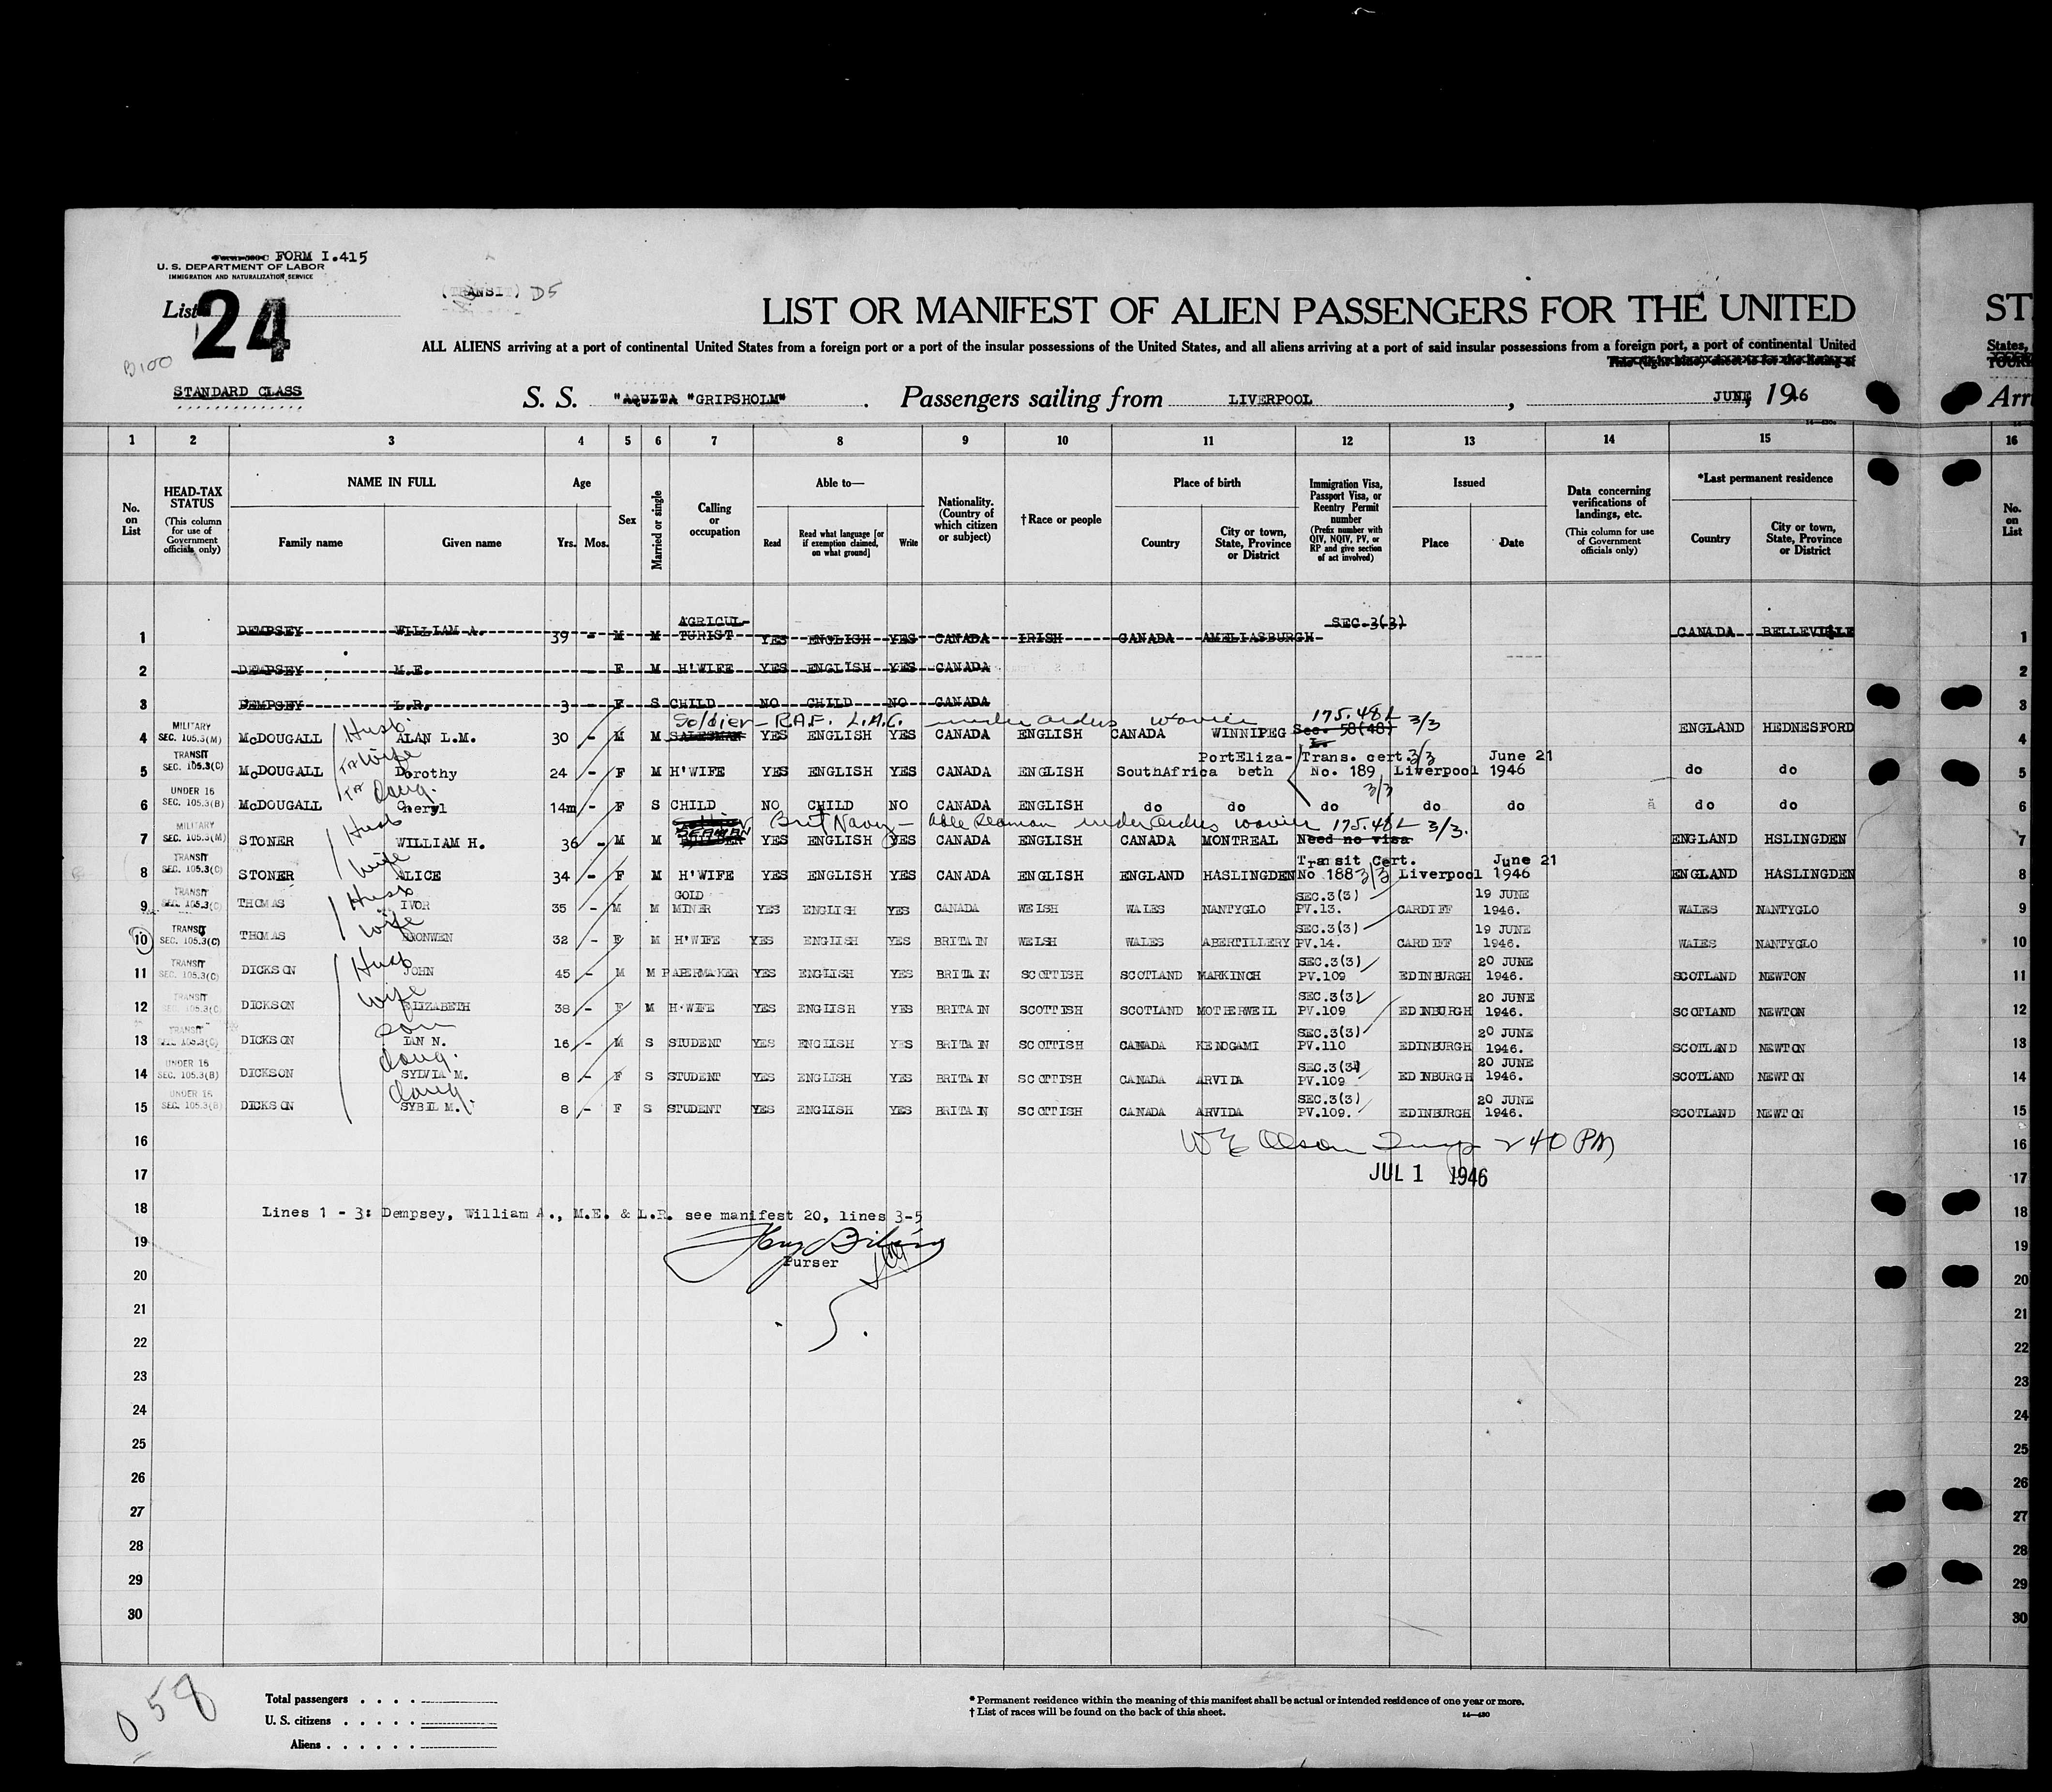 Form 500 C FORM I.415
U. S. DEPARTMENT OF LABOR
IMMIGRATION AND NATURALIZATION SERVICE
List 24
(TRANSIT) D5
B100
STANDARD CLASS
LIST OR MANIFEST OF ALIEN PASSENGERS FOR THE UNITED
ST
ALL ALIENS arriving at a port of continental United States from a foreign port or a port of the insular possessions of the United States, and all aliens arriving at a port of said insular possessions from a foreign port, a port of continental United
States,
This (light blue) sheet is for the listing of
S. S. "AQUITA "GRIPSHOLM" . Passengers sailing from LIVERPOOL , JUNE, 1946
Arri
1 2 3 4 5 6 7 8 9 10 11 12 13 14 15 16
No. on List
HEAD-TAX STATUS (This column for use of Government officials only)
NAME IN FULL Family name Given name
Age Yrs. Mos.
Sex
Married or single
Calling or occupation
Able to— Read Read what language [or if exemption claimed, on what ground] Write
Nationality. (Country of which citizen or subject)
†Race or people
Place of birth Country City or town, State, Province or District
Immigration Visa, Passport Visa, or Reentry Permit number (Prefix number with QIV, NQIV, PV, or RP and give section of act involved)
Issued Place Date
Data concerning verifications of landings, etc. (This column for use of Government officials only)
*Last permanent residence Country City or town, State, Province or District
No. on List
1 DEMPSEY WILLIAM A. 39 - M M AGRICUL-TURIST YES ENGLISH YES CANADA IRISH CANADA AMELIASBURGH SEC.3(3) CANADA BELLEVILLE 1
2 DEMPSEY M.E. F M H'WIFE YES ENGLISH YES CANADA 2
3 DEMPSEY L.R. 3 - F S CHILD NO CHILD NO CANADA 3
Soldier - R.A.F. L.A.C. under orders waiver 175.48L 3/3
4 MILITARY SEC. 105.3(M) McDOUGALL Husb. ALAN L.M. 30 - M M SALESMAN YES ENGLISH YES CANADA ENGLISH CANADA WINNIPEG Sec. 58(48) L. ENGLAND HEDNESFORD 4
5 TRANSIT SEC. 105.3(C) McDOUGALL Wife Dorothy 24 - F M H'WIFE YES ENGLISH YES CANADA ENGLISH SouthAfrica PortEliza-beth Trans. cert. 3/3 No. 189 Liverpool June 21 1946 do do 5
6 UNDER 16 SEC. 105.3(B) McDOUGALL Daug. Cheryl 14m - F S CHILD NO CHILD NO CANADA ENGLISH do do do 3/3 do do do do 6
SEAMAN Brit Navy - Able Seaman under orders waiver 175.48L 3/3.
7 MILITARY SEC. 105.3(M) STONER Husb WILLIAM H. 36 - M M YES ENGLISH YES CANADA ENGLISH CANADA MONTREAL Need no visa ENGLAND HSLINGDEN 7
8 TRANSIT SEC. 105.3(C) STONER Wife ALICE 34 - F M H'WIFE YES ENGLISH YES CANADA ENGLISH ENGLAND HASLINGDEN Transit Cert. No 188 3/3 Liverpool June 21 1946 ENGLAND HASLINGDEN 8
9 TRANSIT SEC. 105.3(C) THOMAS Husb IVOR 35 - M M GOLD MINER YES ENGLISH YES CANADA WELSH WALES NANTYGLO SEC.3(3) PV.13. CARDIFF 19 JUNE 1946. WALES NANTYGLO 9
10 TRANSIT SEC. 105.3(C) THOMAS Wife BRONWEN 32 - F M H'WIFE YES ENGLISH YES BRITAIN WELSH WALES ABERTILLERY SEC.3(3) PV.14. CARDIFF 19 JUNE 1946. WALES NANTYGLO 10
11 TRANSIT SEC. 105.3(C) DICKSON Husb JOHN 45 - M M PAPERMAKER YES ENGLISH YES BRITAIN SCOTTISH SCOTLAND MARKINCH SEC.3(3) PV.109 EDINBURGH 20 JUNE 1946. SCOTLAND NEWTON 11
12 TRANSIT SEC. 105.3(C) DICKSON Wife ELIZABETH 38 - F M H'WIFE YES ENGLISH YES BRITAIN SCOTTISH SCOTLAND MOTHERWELL SEC.3(3) PV.109 EDINBURGH 20 JUNE 1946. SCOTLAND NEWTON 12
13 TRANSIT SEC. 105.3(C) DICKSON Son IAN N. 16 - M S STUDENT YES ENGLISH YES BRITAIN SCOTTISH CANADA KENOGAMI SEC.3(3) PV.110 EDINBURGH 20 JUNE 1946. SCOTLAND NEWTON 13
14 UNDER 16 SEC. 105.3(B) DICKSON Daug. SYLVIA M. 8 - F S STUDENT YES ENGLISH YES BRITAIN SCOTTISH CANADA ARVIDA SEC.3(3) PV.109 EDINBURGH 20 JUNE 1946. SCOTLAND NEWTON 14
15 UNDER 16 SEC. 105.3(B) DICKSON Daug. SYBIL M. 8 - F S STUDENT YES ENGLISH YES BRITAIN SCOTTISH CANADA ARVIDA SEC.3(3) PV.109. EDINBURGH 20 JUNE 1946. SCOTLAND NEWTON 15
16 W E Olson Insp 2 40 PM 16
17 JUL 1 1946 17
18 Lines 1 - 3: Dempsey, William A., M.E. & L.R. see manifest 20, lines 3-5 18
19 19
Purser
20 20
21 21
22 22
23 23
24 24
25 25
26 26
27 27
28 28
29 29
30 30
058
Total passengers . . . .
U. S. citizens . . . . .
Aliens . . . . . .
* Permanent residence within the meaning of this manifest shall be actual or intended residence of one year or more.
† List of races will be found on the back of this sheet.
14—430